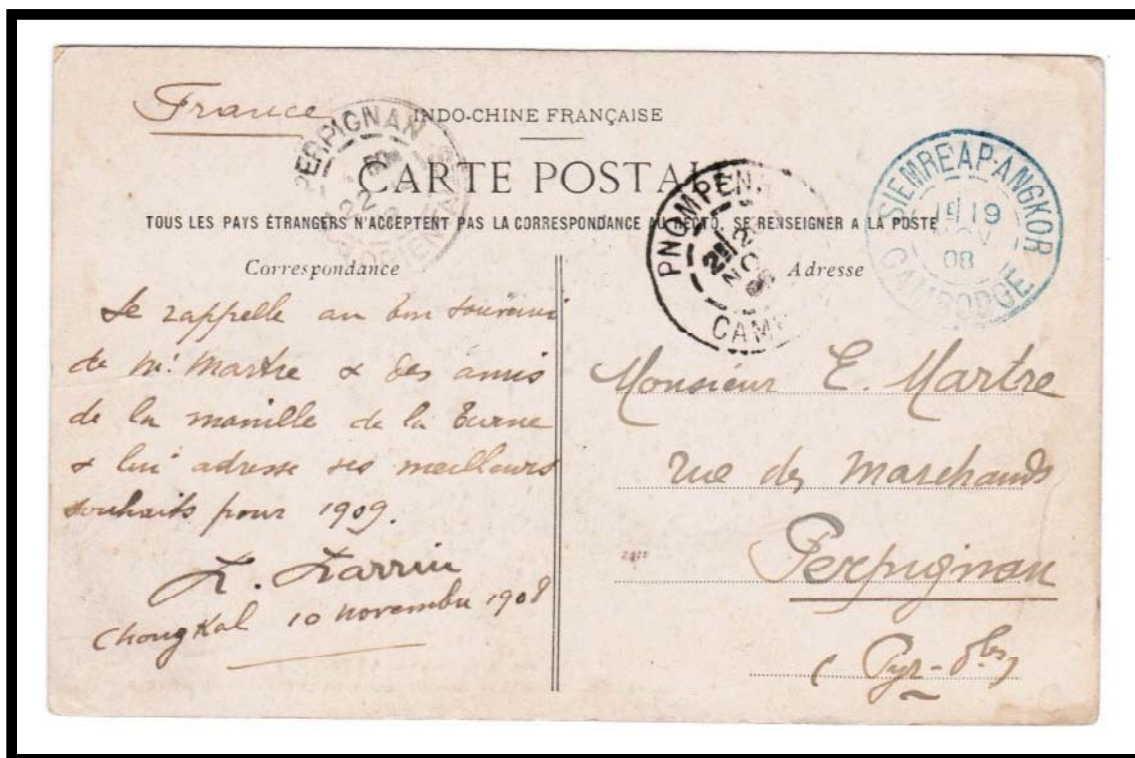 France
INDO-CHINE FRANÇAISE
CARTE POSTALE
TOUS LES PAYS ÉTRANGERS N'ACCEPTENT PAS LA CORRESPONDANCE AU RECTO, SE RENSEIGNER A LA POSTE
PERPIGNAN
22
PNOMPENH
CAMB
SIEMREAP-ANGKOR
19
NOV
08
CAMBODGE
Correspondance
Se rappelle au bon souvenir
de Mr Martre & des amis
de la manille de la
& lui adresse ses meilleurs
souhaits pour 1909.
Chongkal 10 novembre 1908
Adresse
Monsieur E. Martre
rue des Marchands
Perpignan
(Pyr-Oles)